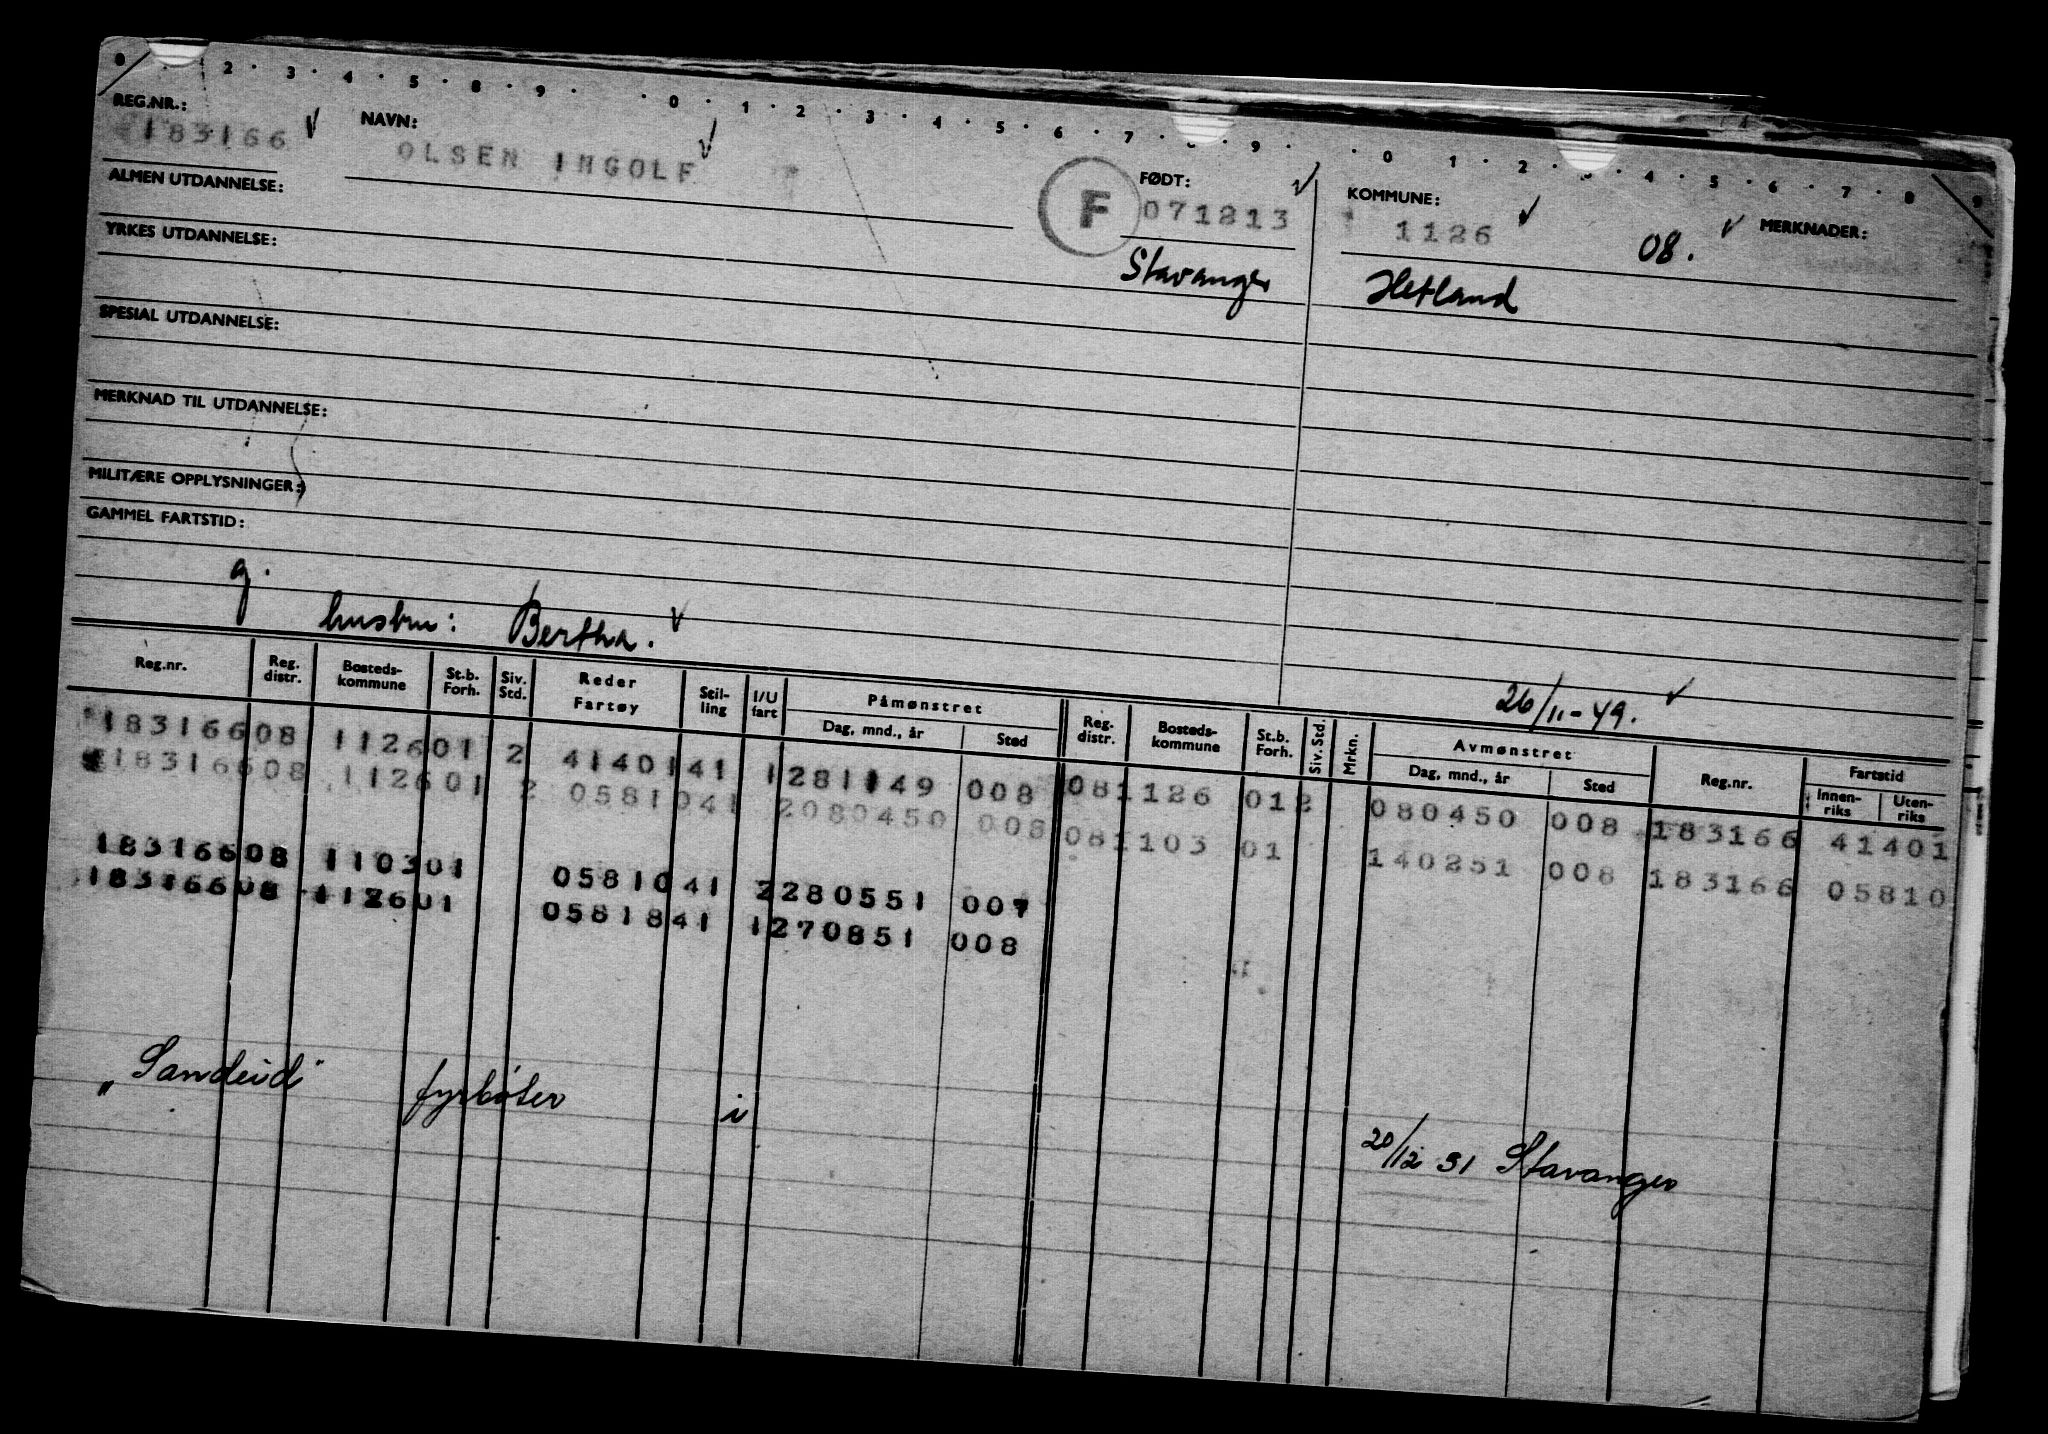 0 · 2 · 3 · 4 · 5 · 8 · 9 · · 0 · 1 · 2 · 3 · 4 · 5 · 6 · 7 · 9 · · 0 · 1 · 2 · 4 · 5 · 6 · 7 · 8 · 9
REG.NR.: 183166 NAVN: OLSEN INGOLF
F FØDT: 071213 KOMMUNE: 1126 08. MERKNADER:
ALMEN UTDANNELSE:
Stavanger Hetland
YRKES UTDANNELSE:
SPESIAL UTDANNELSE:
MERKNAD TIL UTDANNELSE:
MILITÆRE OPPLYSNINGER:
GAMMEL FARTSTID:
g. hustru: Bertha.
26/11-49.
Reg.nr. Reg. distr. Bosteds-kommune St.b. Forh. Siv. Std. Reder Fartøy Stil-ling I/U fart Påmønstret Dag, mnd., år Sted Reg. distr. Bosteds-kommune St.b. Forh. Siv. Std. Mrkn. Avmønstret Dag, mnd., år Sted Reg.nr. Fartstid Innen-riks Uten-riks
18316608 112601 2 4140141 1281149 008 081126 012 080450 008 183166 41401
18316608 112601 2 0581041 2080450 008 081103 01 140251 008 183166 05810
18316608 110301 0581041 2280551 007
18316608 112601 0581841 1270851 008
„Sandeid" fyrbøter i 20/12 51 Stavanger